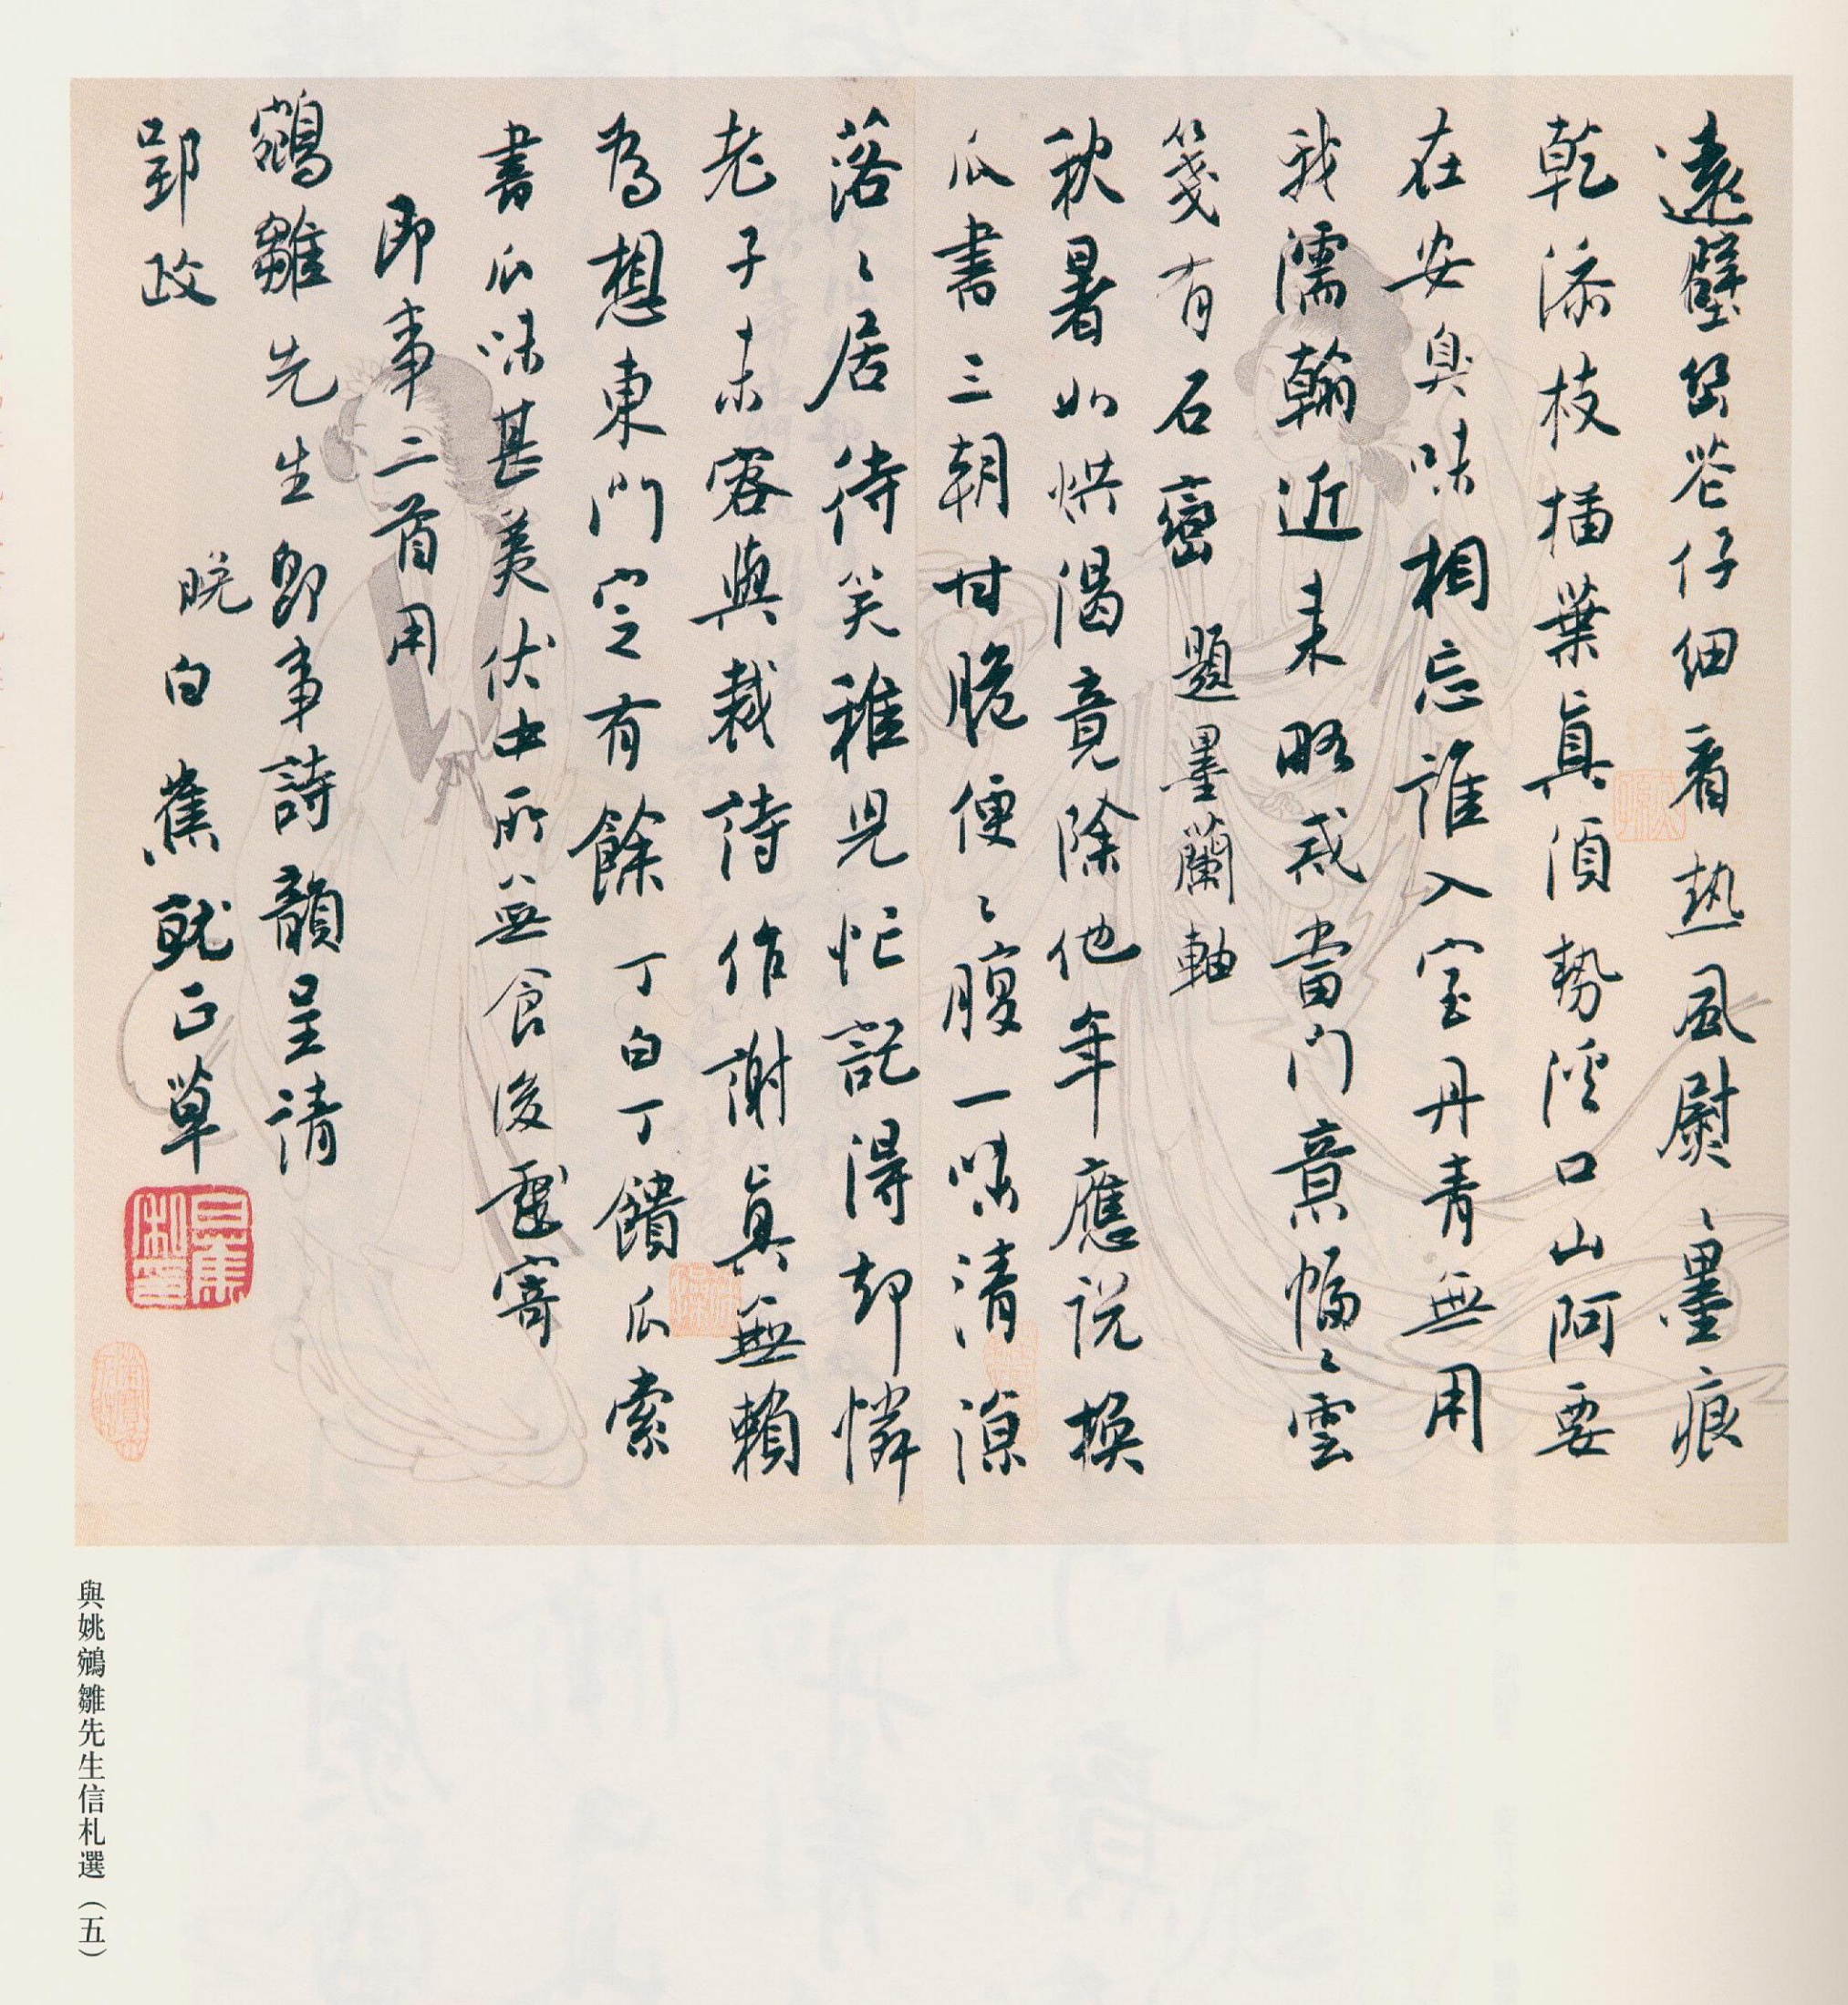 遠壁盆花仔細看熱風熨々墨痕
乾添枝插葉真須勢溪口山阿要
在安臭味相忘誰入室丹青無用
我濡翰近來略戒當門意幅々雲
箋有石巒 題墨蘭軸
秋暑如烘渴竟除他年應說換
瓜書三朝甘脆便々腹一味清涼
落々居待笑稚兒忙記得却憐
老子未容與裁詩作謝真無賴
為想東門定有餘 丁白丁饋瓜索
書瓜味甚美伏中所無食後戲寄
即事二首用
鵷雛先生即事詩韻呈請
郢政
晚白蕉就正草
與姚鵷雛先生信札選（五）